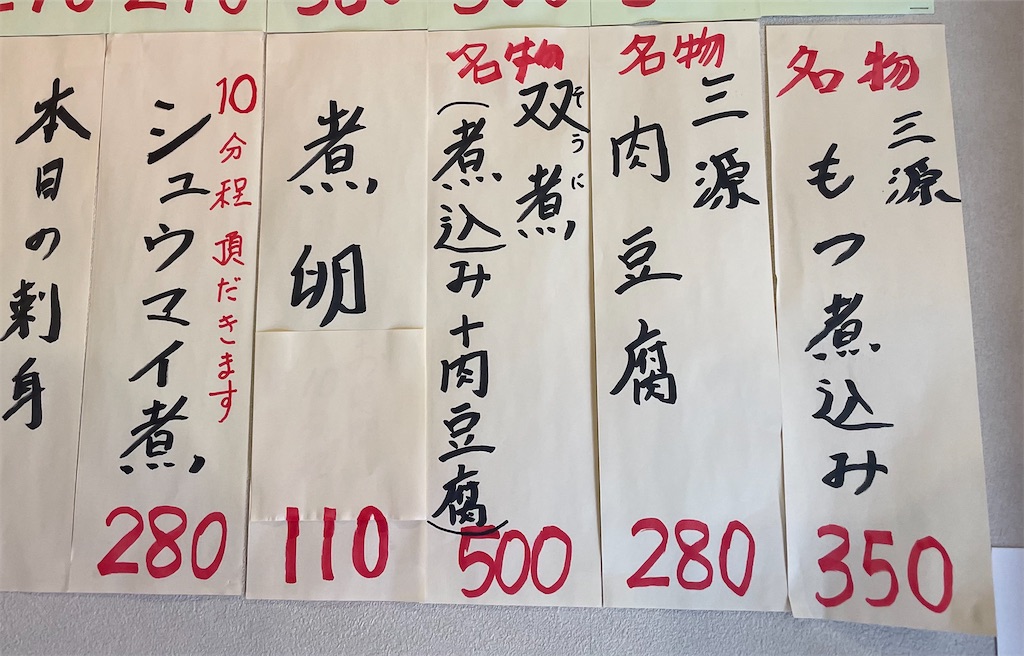 名物
三源
もつ煮込み
350
名物
三源
肉豆腐
280
名物
双煮
そうに
(煮込み+肉豆腐)
500
煮卵
110
10分程頂だきます
シュウマイ煮
280
本日の刺身